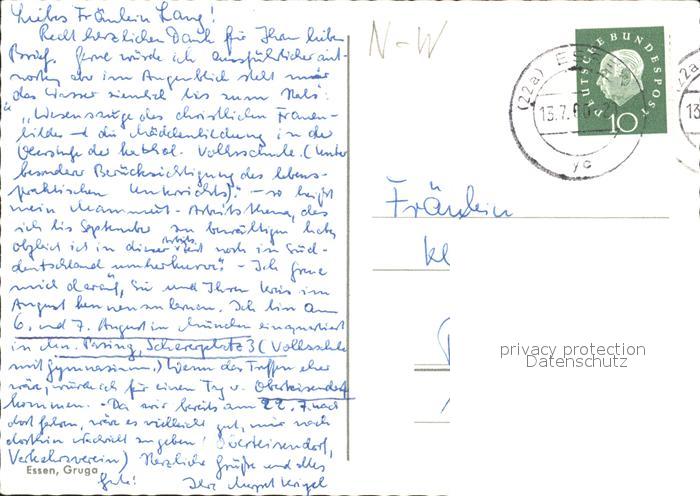 Liebes Fräulein Lang!
Recht herzlichen Dank für Ihren lieben
Brief. Gerne würde ich ausführlicher ant-
worten aber im Augenblick steht mir
das Wasser ziemlich bis zum Hals:
"Wesenszüge des christlichen Frauen-
bildes und die Mädchenbildung in der
Oberstufe der kathol. Volksschule. (Unter
besonderer Berücksichtigung des lebens-
praktischen Unterrichts)." – so heißt
mein Mammut-Arbeitsthema, das
ich bis September zu bewältigen habe,
obgleich ich in dieser Arbeitszeit noch in Süd-
deutschland umherkurve. – Ich freue
mich darauf, Sie und Ihren Kreis im
August kennenzulernen. Ich bin am
6. und 7. August in München einquartiert
in Mü. Pasing, Schererplatz 3 (Volksschule
mit Gymnasium.) Wenn das Treffen eher
wäre, würde ich für einen Tag v. Oberteisendorf
kommen. – Da wir bereits am 22.7. nach
dort fahren, wäre es vielleicht gut, mir nach
dorthin Nachricht zu geben! (Oberteisendorf,
Verkehrsverein) Herzliche Grüße und alles
Essen, Gruga
Gute! Ihre
N-W
DEUTSCHE BUNDESPOST
10
(22a)
13.7.60
yc
(22a)
13
Fräulein
privacy protection
Datenschutz